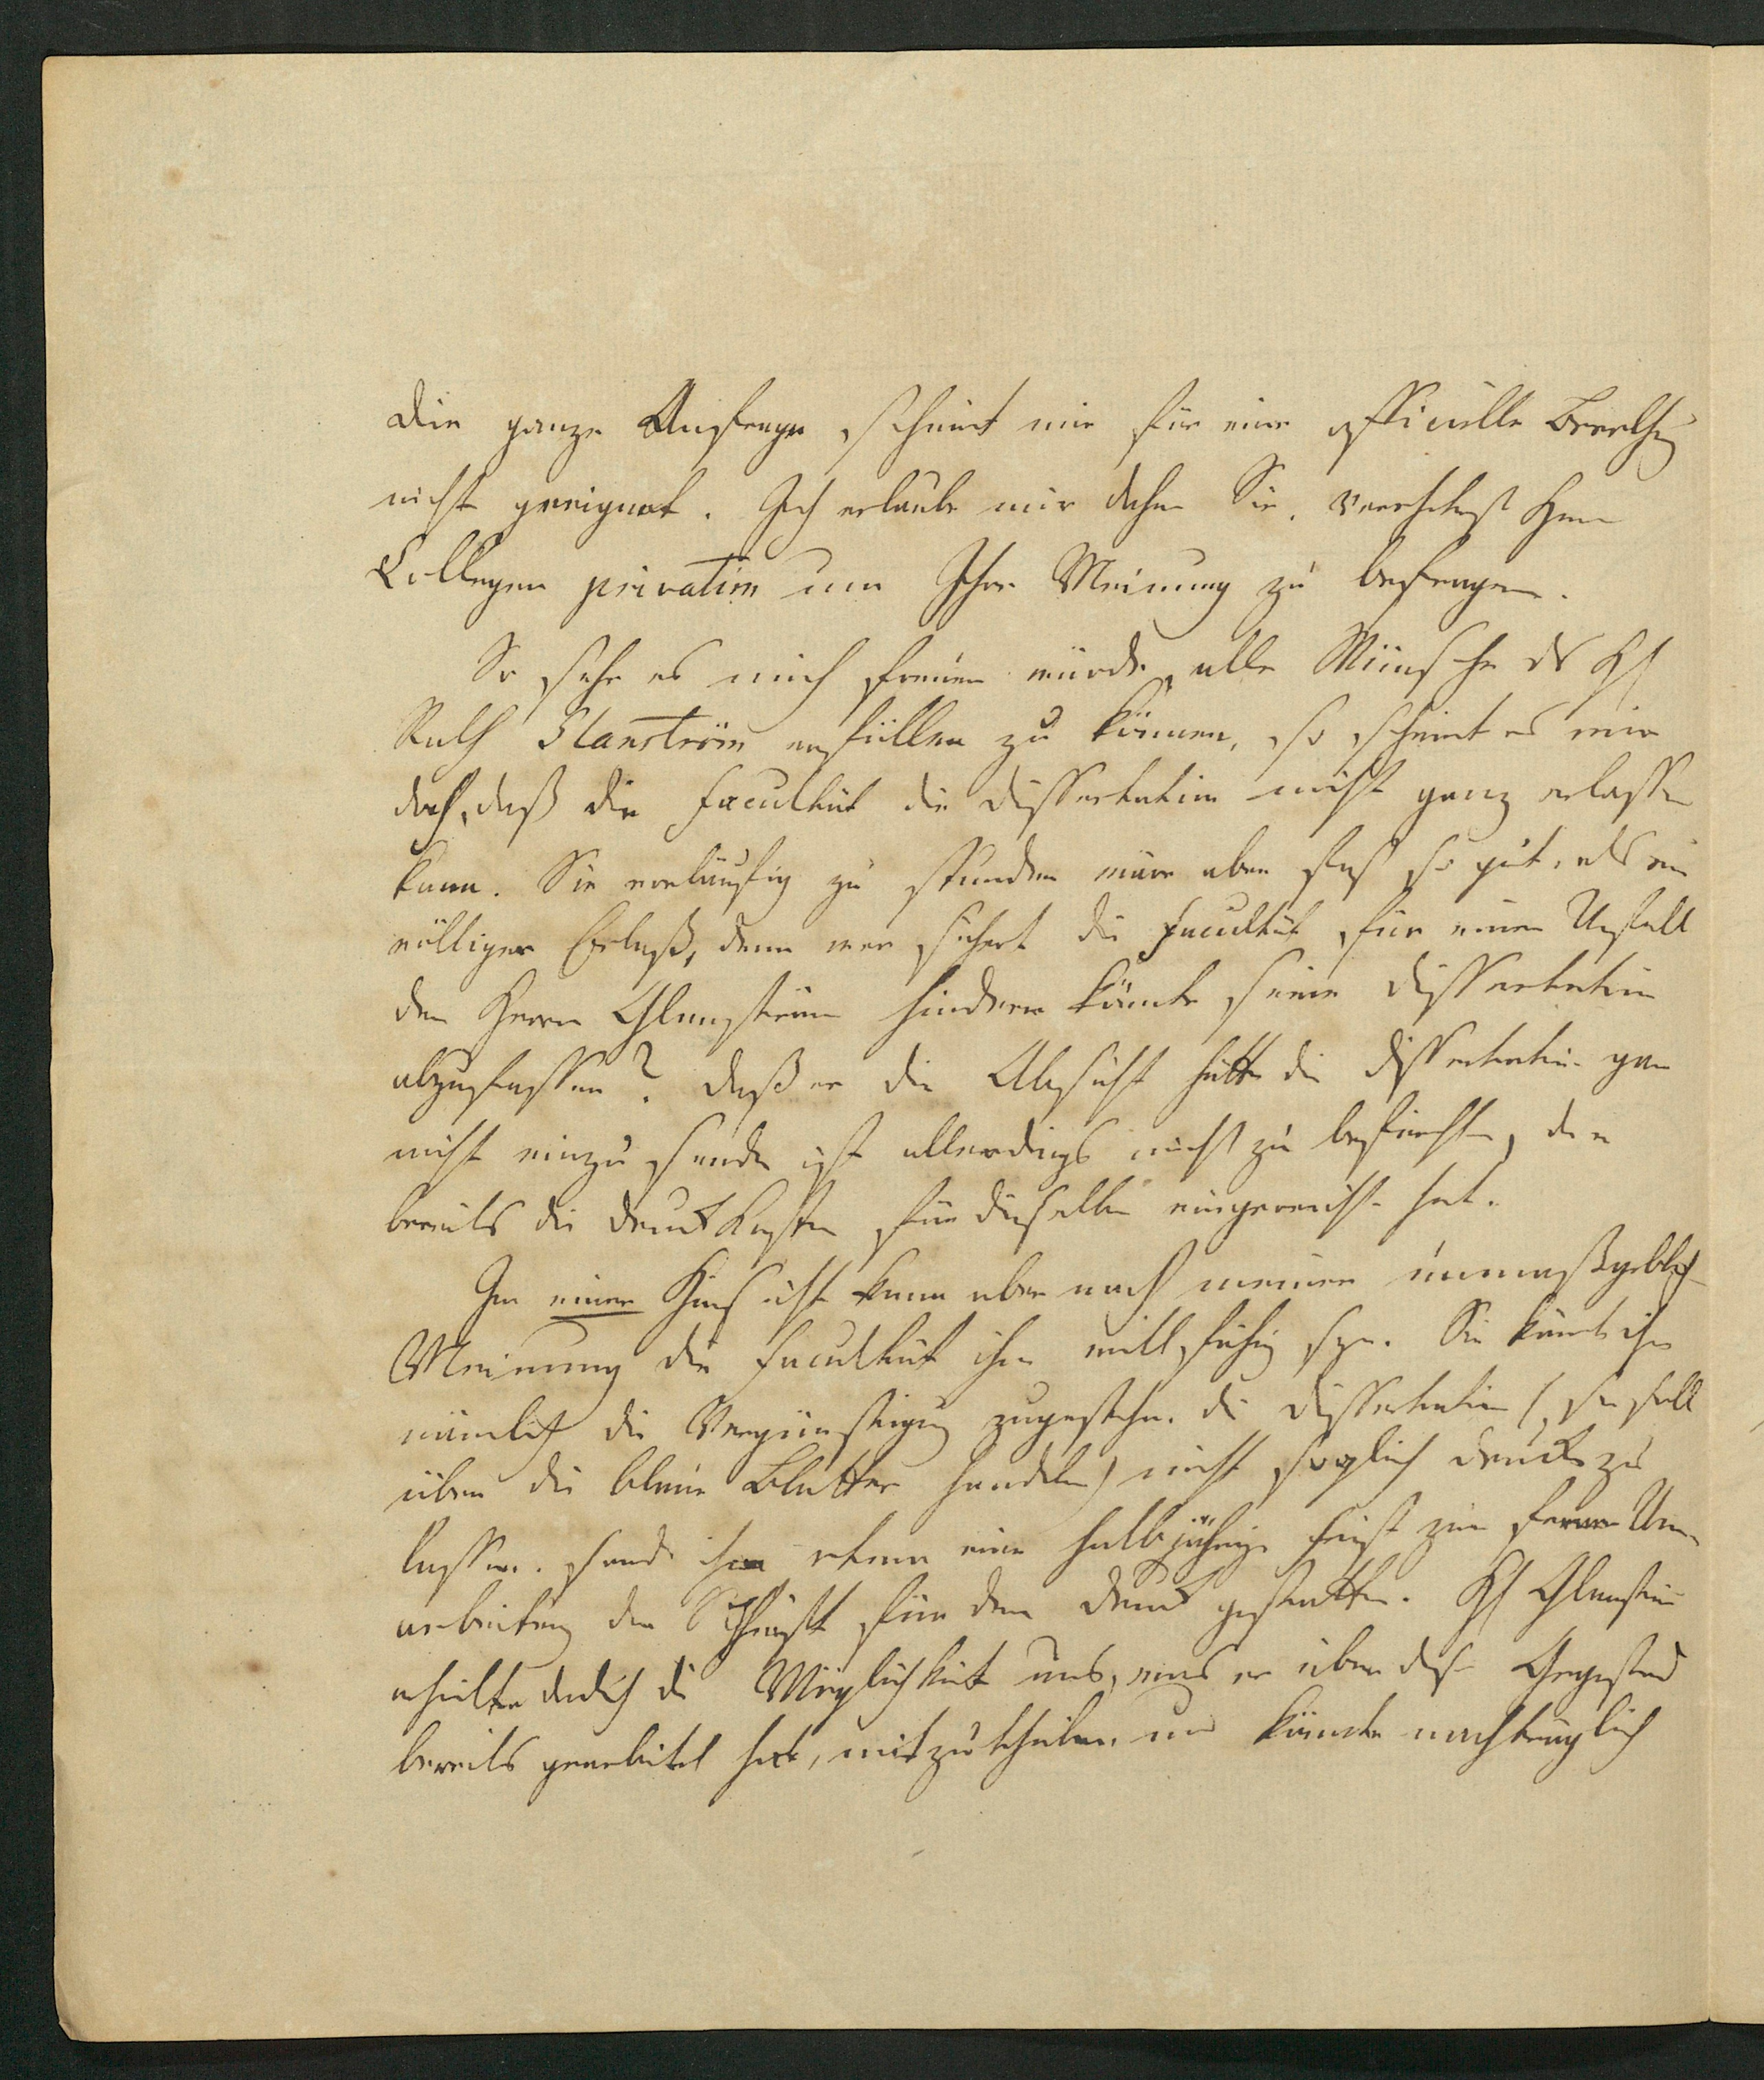 Die ganze Anfrage scheint mir für eine officielle Berathg
nicht geeignet. Ich erlaube mir daher Sie, verehrtest Herrn
Collegen privatim um Ihre Meinung zu befragen.
So sehr es mich freuen würde, alle Wünsche des H
Rath Glanström erfüllen zu können, so scheint es mir
doch, daß die Facultät die Dissertation nicht ganz erlassen
kann. Sie vorläufig zu stunden wäre aber fast so gut, als ein
völliger Erlaß, denn wer sichert die Facultät für einen Unfall
der Herrn Glanström hindern könnte seine Dissertation
abzufassen? Daß er die Absicht hätte die Dissertation gar
nicht einzusenden ist allerdings nicht zu befürchten, da er
bereits die Druckkosten für dieselbe eingereicht hat.
In einer Hinsicht kann aber nach meiner unmaßgeblich
Meinung die Facultät ihm willfährig seyn. Sie könnte ihm
nämlich die Vergünstigung zugestehn, die Dissertation (sie soll
über die Blatter handeln) nicht sogleich drucken zu
lassen, ihm etwa eine halbjährige Frist zur fernern Um-
arbeitung der Schrift für den Druck gestatten. H Glanström
erhielte dadurch die Möglichkeit uns, was er über diesen Gegenstand
bereits gearbeitet hat, mitzutheilen und könnte nachträglich